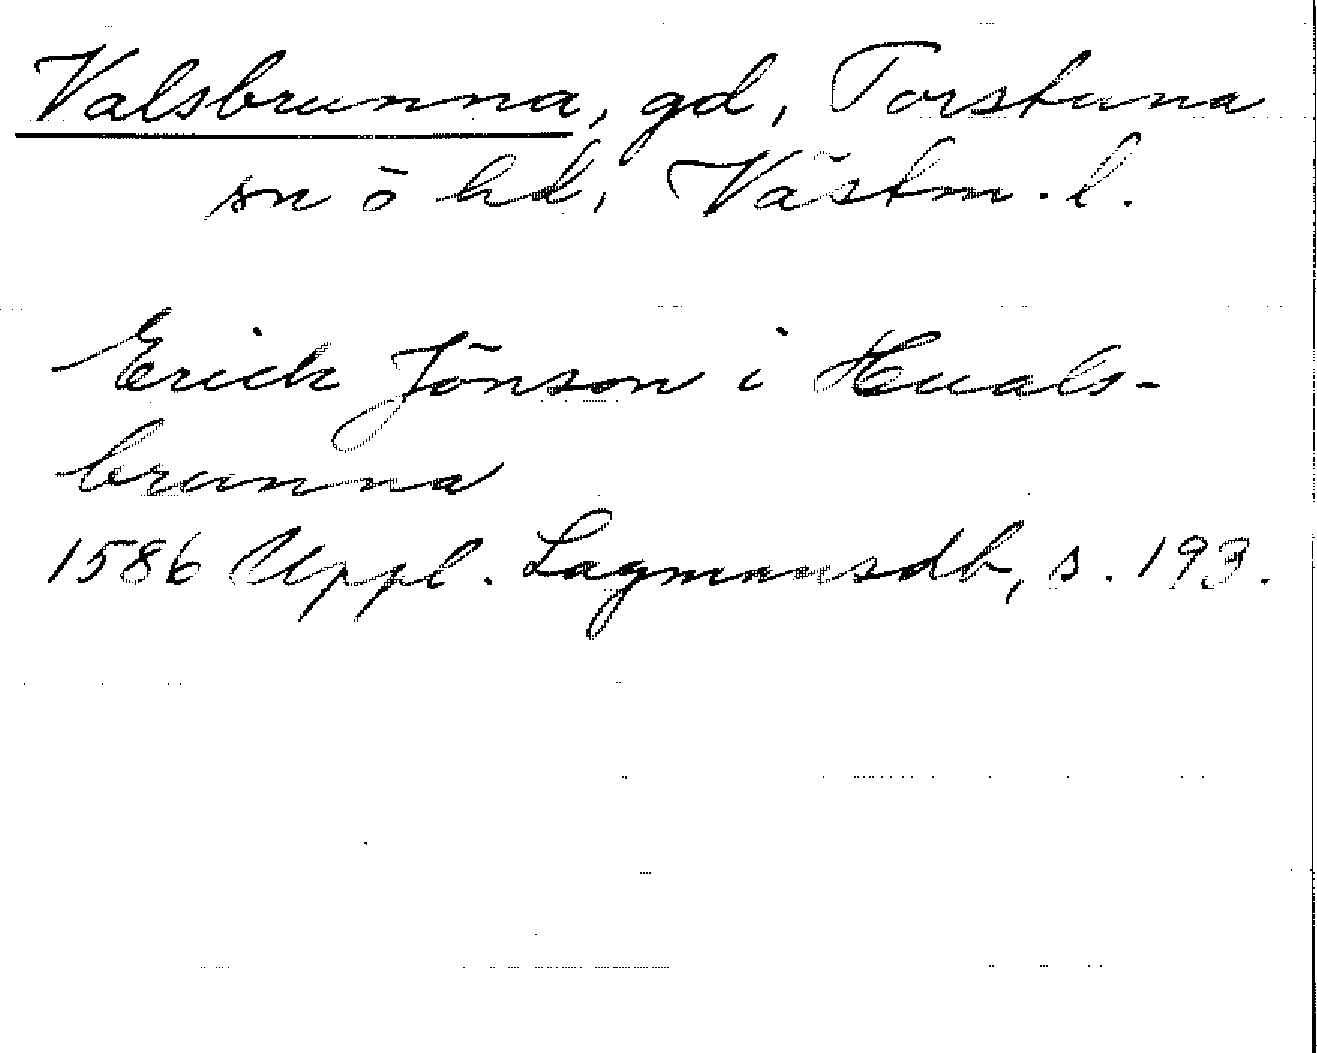 Valsbrunna, gd, Torstuna
sn ō hd, Västm. l.
Erick Jönson i Huals-
brunna
1586 Uppl. Lagmansdb, s. 193.